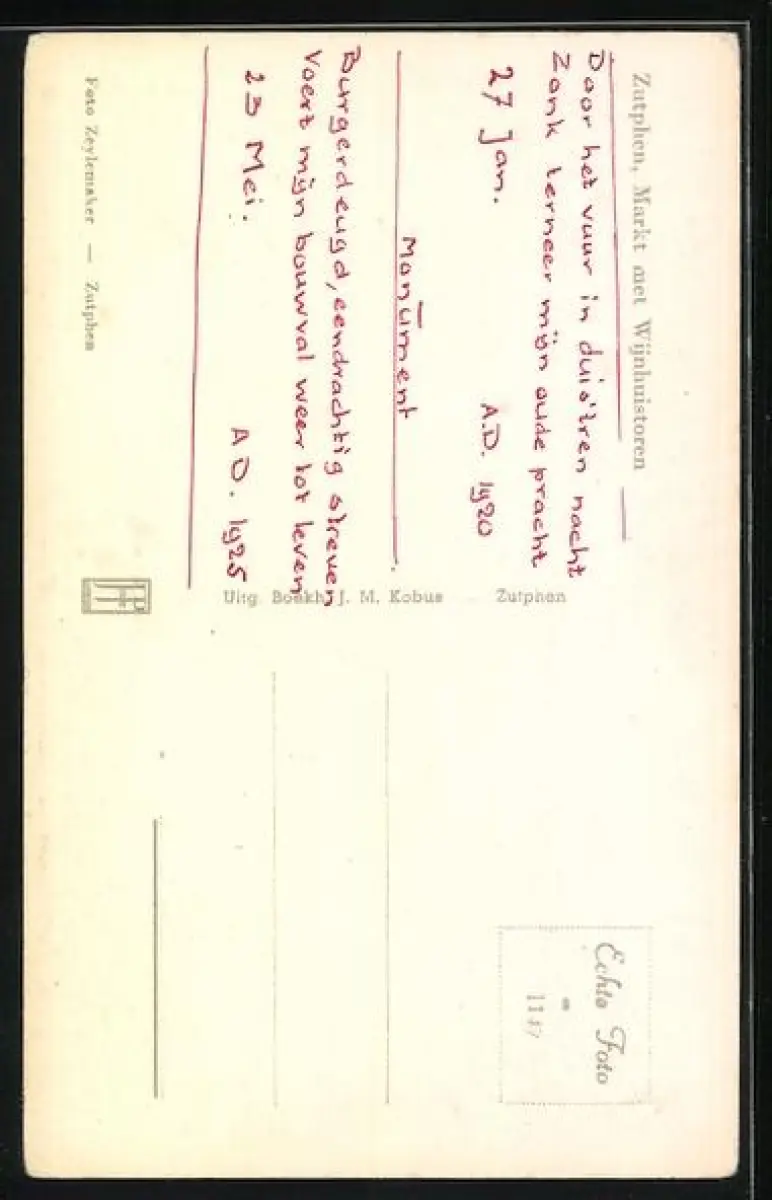 Zutphen, Markt met Wijnhuistoren
Door het vuur in duist'ren nacht
Zonk terneer mijn oude pracht
27 Jan. A.D. 1920
Monument
Burgerdeugd, eendrachtig streven
Voert mijn bouwval weer tot leven
23 Mei. A D. 1925
Foto Zeylemaker — Zutphen
Uitg. Boekh. J. M. Kobus Zutphen
Echte Foto